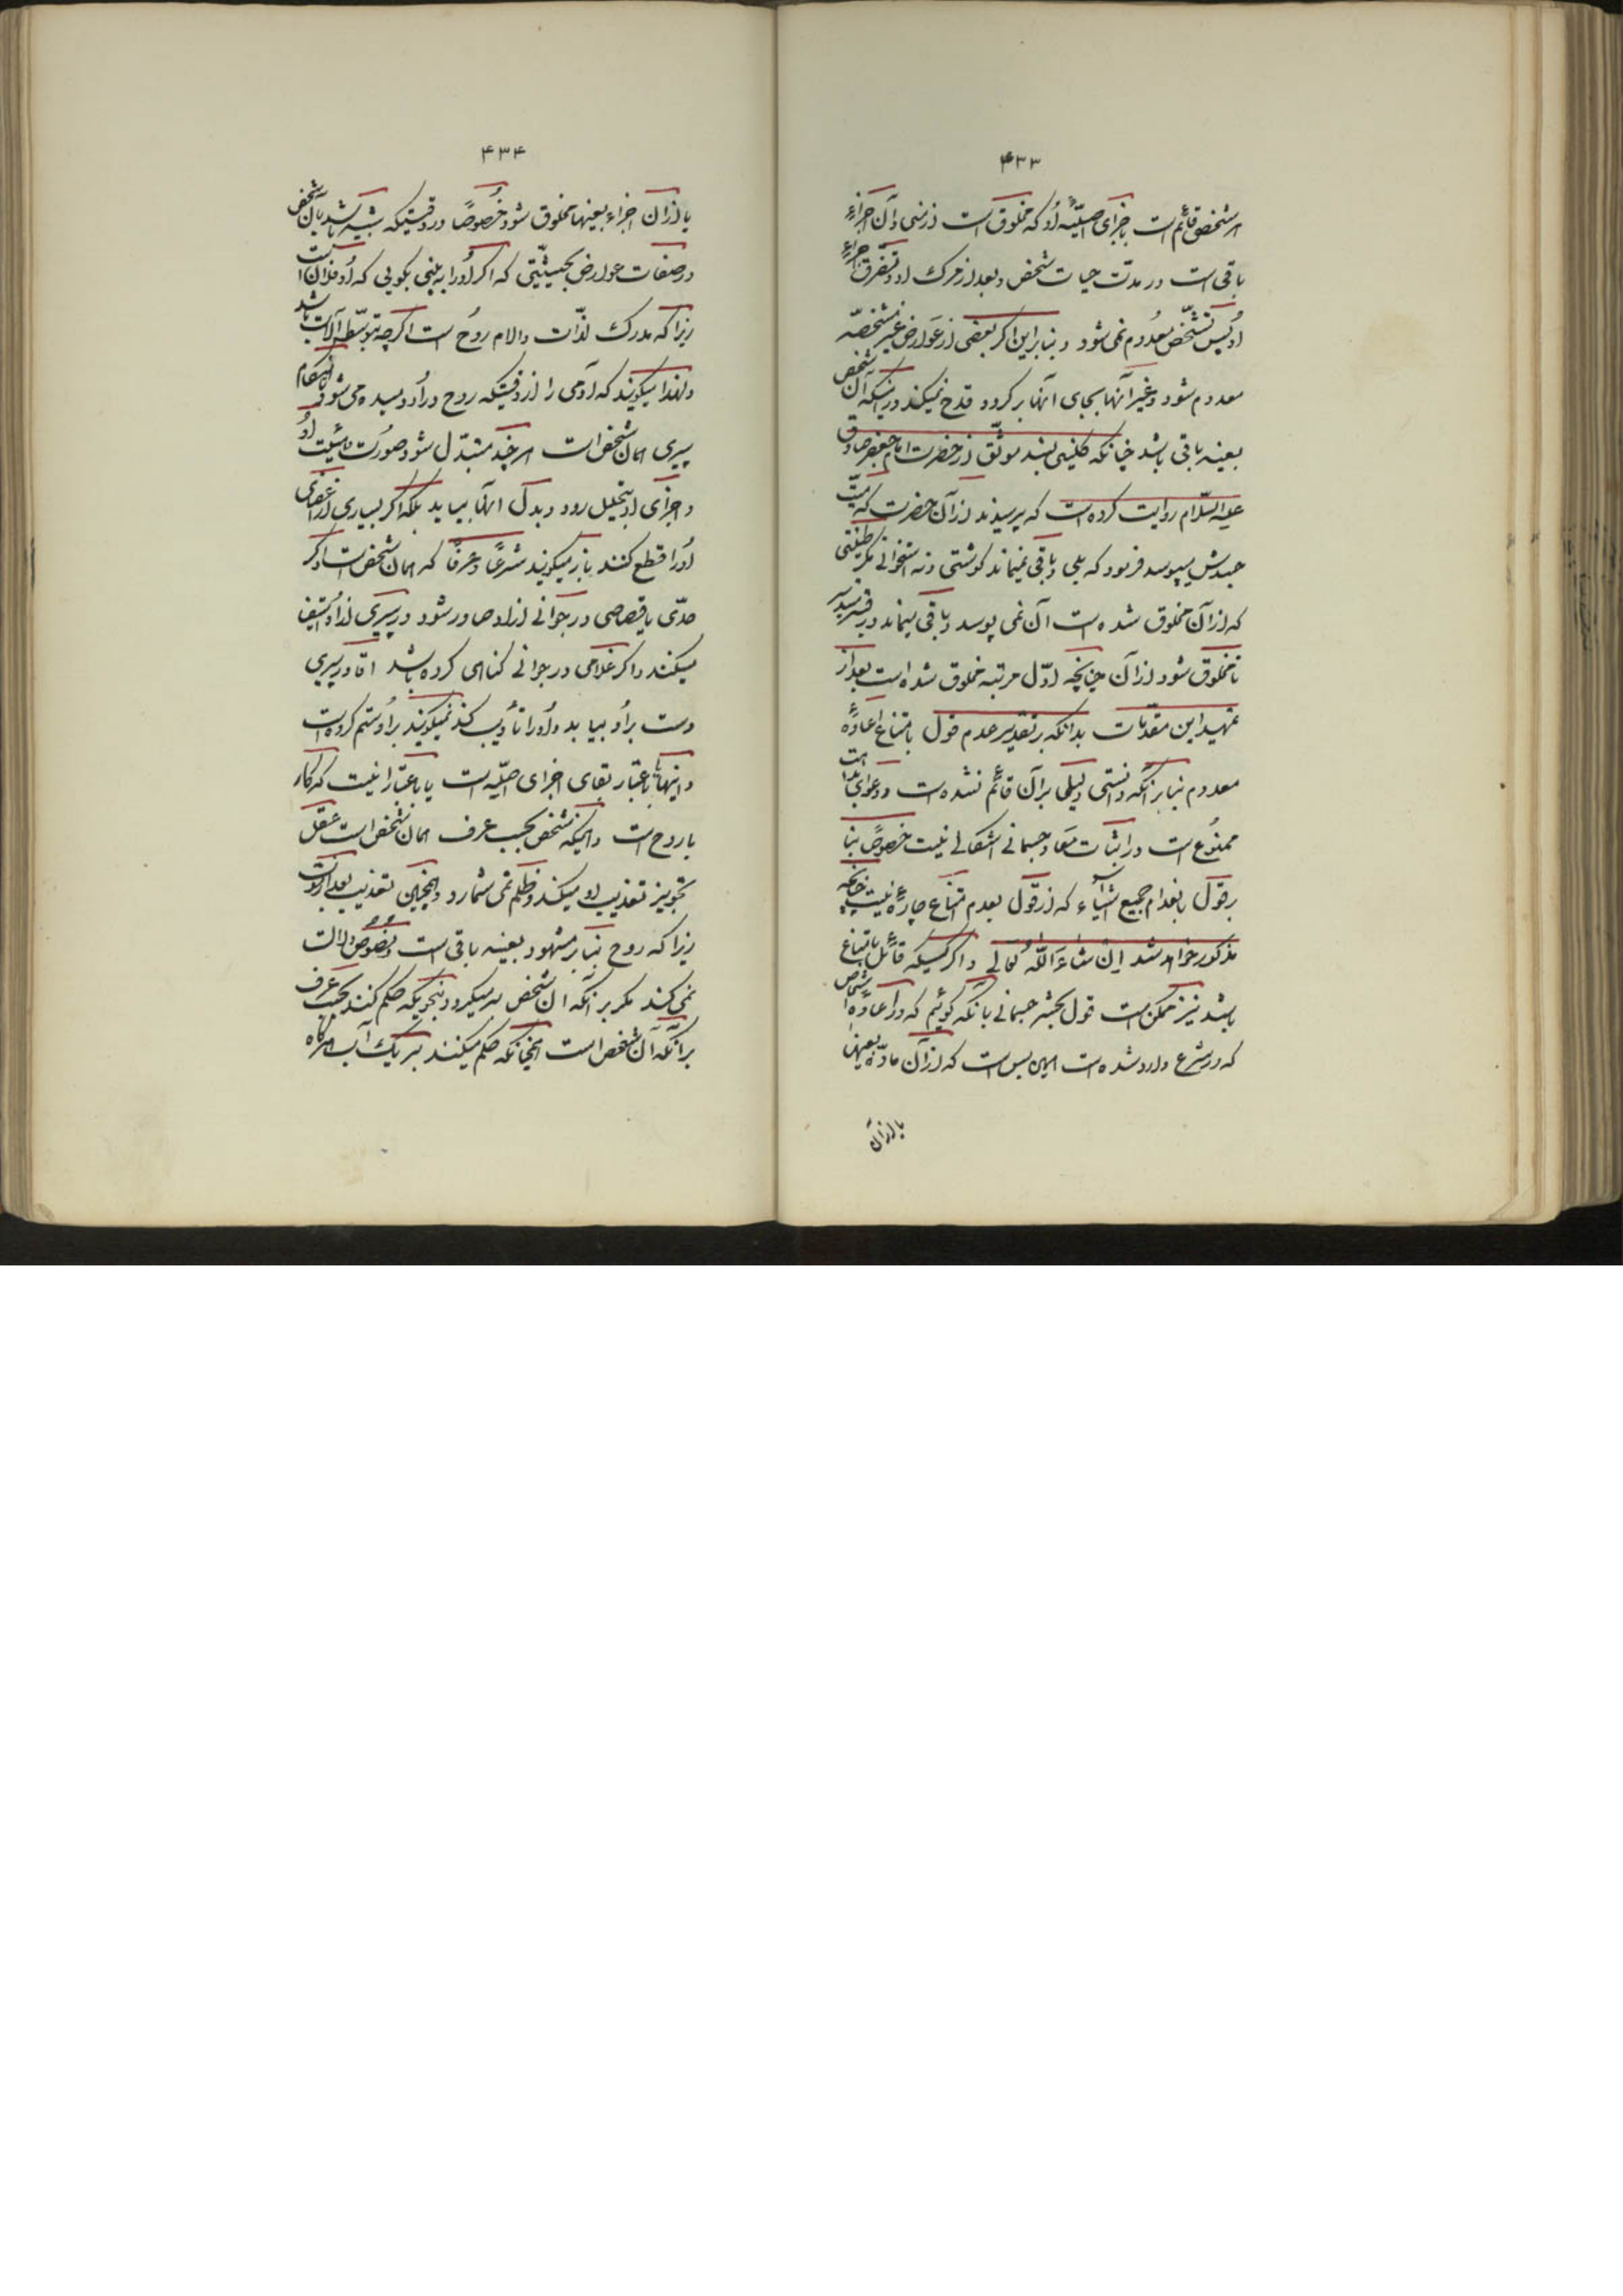 ۴۳۳
هر شخص قائم است باجزای اصلیّه او که مخلوق است از منی و آن اجزاء
باقی است در مدّت حیات شخص و بعد از مرگ او و تفرّق اجزاء
او پس تشخّص معدوم نمی‌شود و بنابراین اگر بعضی از عوارض غیر مشخّصه
معدوم شود و غیر آنها بجای آنها برگردد قدح نمیکند در اینکه آن شخص
بعینه باقی باشد چنانکه کلینی بسند موثّق از حضرت امام جعفر صادق
علیه السّلام روایت کرده است که پرسیدند از آن حضرت که میّت
جسدش میپوسد فرمود که بلی و باقی نمیماند گوشتی و نه استخوانی مگر طینتی
که از آن مخلوق شده است آن نمی پوسد و باقی میماند در قبر مستدیر
تا مخلوق شود از آن چنانچه اوّل مرتبه مخلوق شده است بعد از
تمهید این مقدّمات بدانکه بر تقدیر عدم قول بامتناع اعادهٔ
معدوم بنابر آنکه دانستی دلیلی بر آن قائم نشده است و دعوای بداهت
ممنوع است در اثبات معاد جسمانی اشکالی نیست خصوصاً بنا
بر قول بانعدام جمیع اشیاء که از قول بعدم امتناع چارهٔ نیست چنانچه
مذکور خواهد شد إن شاءَ اللّهُ تعالی و اگر کسیکه قائل بامتناع
باشد نیز ممکن است قول بحشر جسمانی بآنکه گوئیم که در اعادهٔ اشخاص
که در شرع وارد شده است همین بس است که از آن مادّه بعینها
یا از آن
۴۳۴
یا از آن اجزاء بعینها مخلوق شود خصوصاً در وقتیکه شبیه باشد بآن شخص
در صفات و عوارض بحیثیّتی که اگر او را به بینی بگویی که او فلان است
زیرا که مدرک لذّات و الام روح است اگرچه بتوسّط آلات باشد
ولهذا میگویند که آدمی را از وقتیکه روح در او دمیده می شود تا هنگام
پیری همان شخص است هر چند متبدّل شود صورت و هیئت او
و اجزای او بتحلیل رود و بدل آنها بیاید بلکه اگر بسیاری از اعضای
او را قطع کنند باز میگویند شرعاً و عرفاً که همان شخص است و اگر
حدّی یا قصاصی در جوانی از او صادر شود در پیری از او استیفا
میکنند و اگر غلامی در جوانی گناهی کرده باشد آقا در پیری
دست بر او بیابد و او را تأدیب کند نمیگویند بر او ستم کرده است
و اینها یا باعتبار بقای اجزای اصلیّه است یا باعتبار اینست که کار
با روح است و اینکه شخص بحسب عرف همان شخص است عقل
تجویز تعذیب او میکند و ظلم نمی شمارد و همچنین تعذیب بعد از موت
زیرا که روح بنابر مشهور بعینه باقی است و نصوص دلالت
نمی کند مگر بر آنکه آن شخص بر میگردد بنحویکه حکم کنند بحسب عرف
بر آنکه آن شخص است همچنانکه حکم میکنند بر یک آب هرگاه